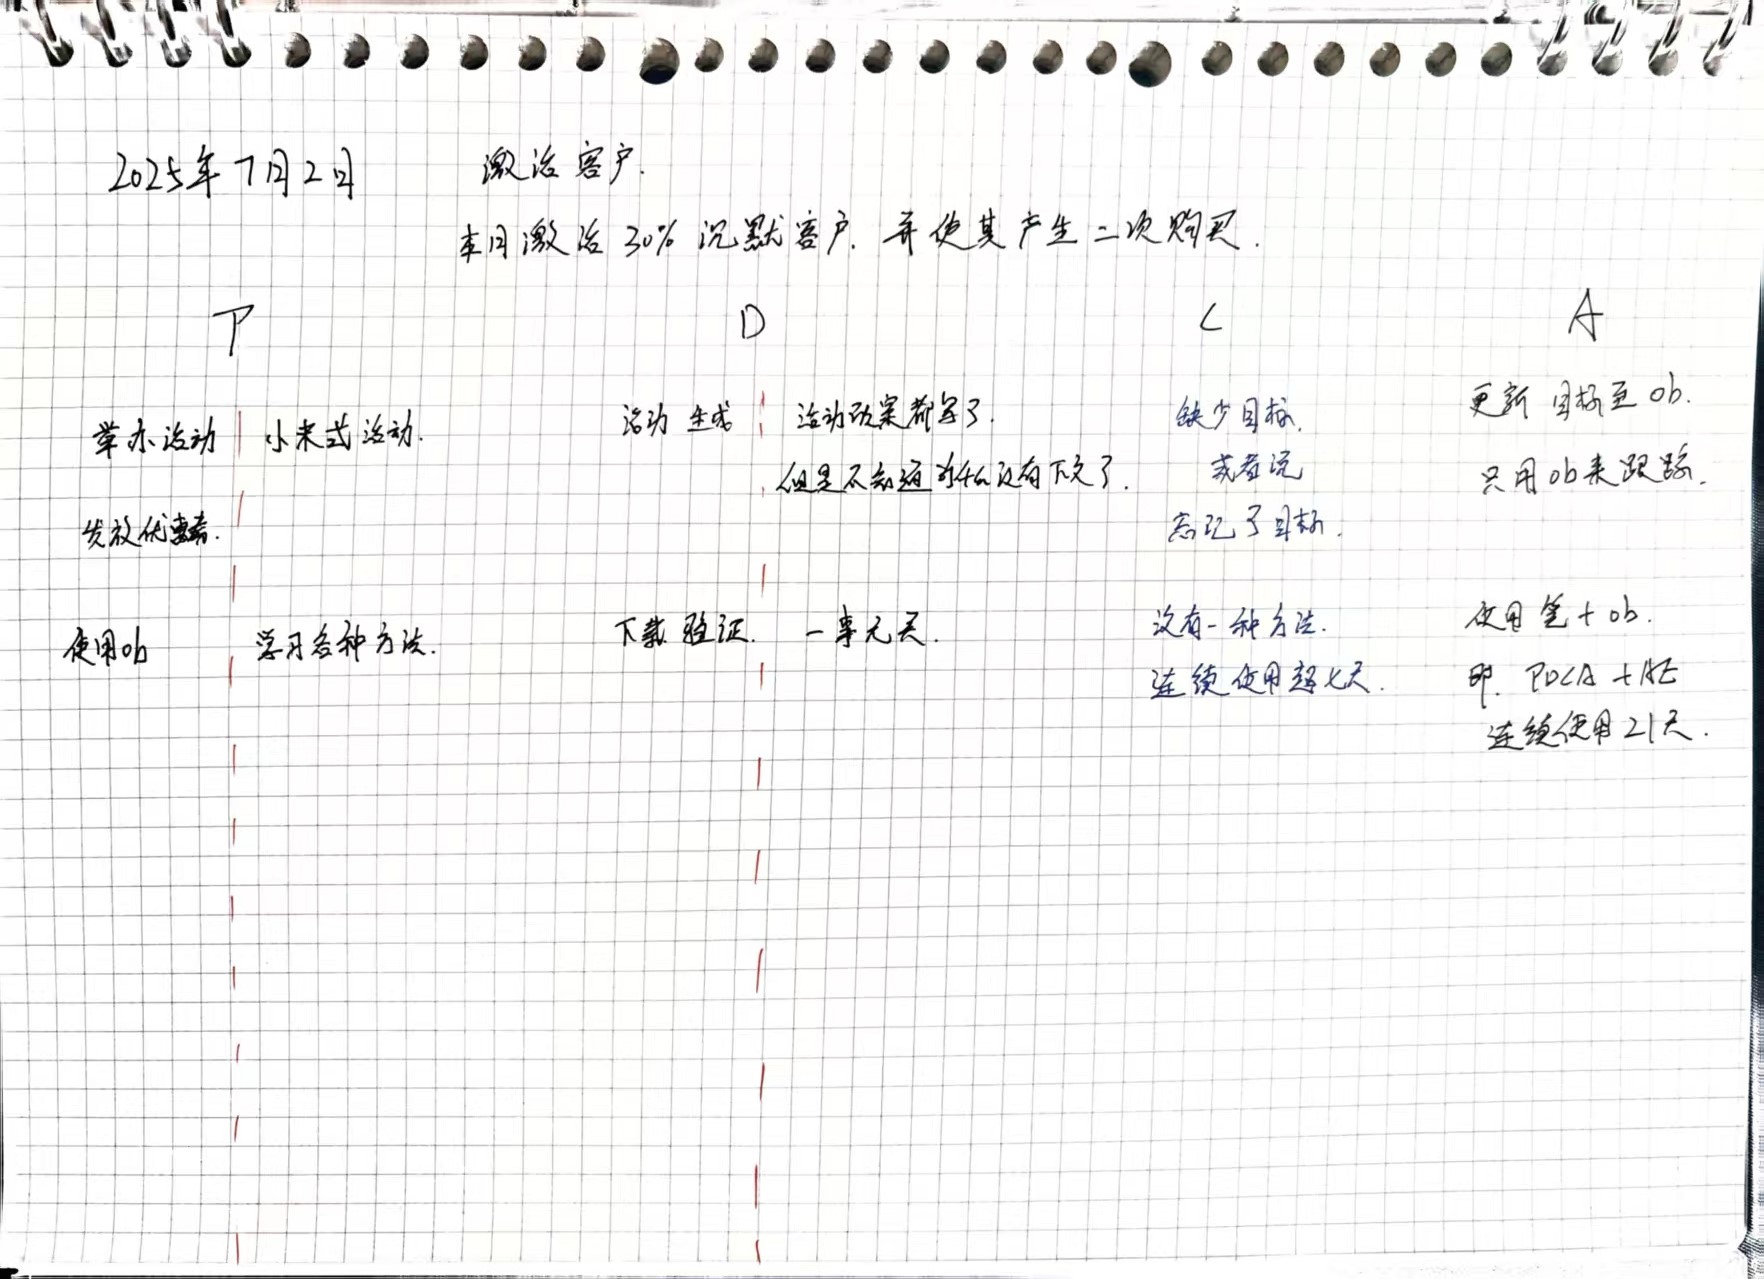 2025年7月2日 激活客户.
本月激活30%沉默客户. 并使其产生二次购买.
P D C A
举办活动 小米式活动.
发放优惠券.
活动 生成 活动政案都写了.
但是不知道为什么没有下文了.
缺少目标.
或者说
忘记了目标.
更新 目标至 ob.
只用ob来跟踪.
使用ob 学习各种方法.
下载 验证. 一事无天.
没有一种方法.
连续使用超七天.
使用笔+ob.
即. PDCA +AE
连续使用21天.